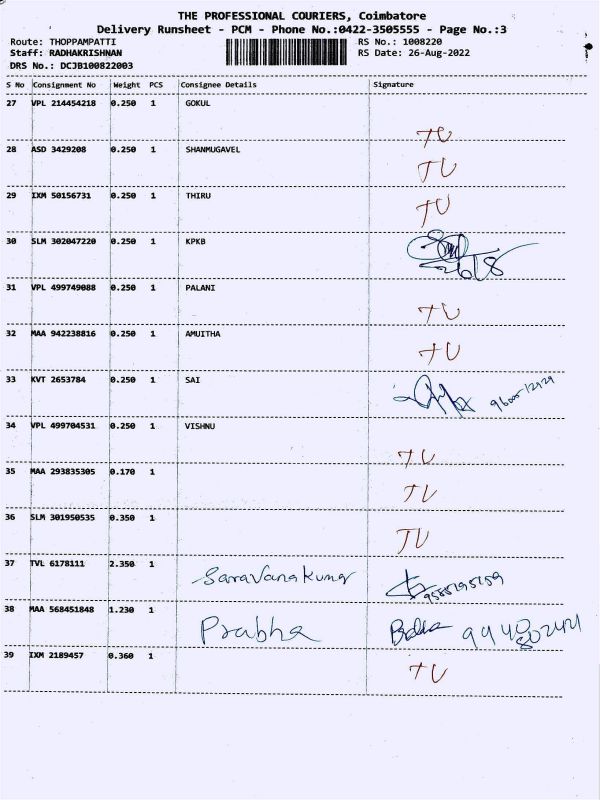 THE PROFESSIONAL COURIERS, Coimbatore
Delivery Runsheet - PCM - Phone No.:0422-3505555 - Page No.:3
Route: THOPPAMPATTI RS No.: 1008220
Staff: RADHAKRISHNAN RS Date: 26-Aug-2022
DRS No.: DCJB100822003
S No Consignment No Weight PCS Consignee Details Signature
27 VPL 214454218 0.250 1 GOKUL TU
28 ASD 3429208 0.250 1 SHANMUGAVEL TU
29 IXM 50156731 0.250 1 THIRU TU
30 SLM 302047220 0.250 1 KPKB
31 VPL 499749088 0.250 1 PALANI TU
32 MAA 942238816 0.250 1 AMUITHA TU
33 KVT 2653784 0.250 1 SAI
34 VPL 499704531 0.250 1 VISHNU TU
35 MAA 293835305 0.170 1 TU
36 SLM 301950535 0.350 1 TU
37 TVL 6178111 2.350 1 Saravanakumar
38 MAA 568451848 1.230 1 Prabha
39 IXM 2189457 0.360 1 TU